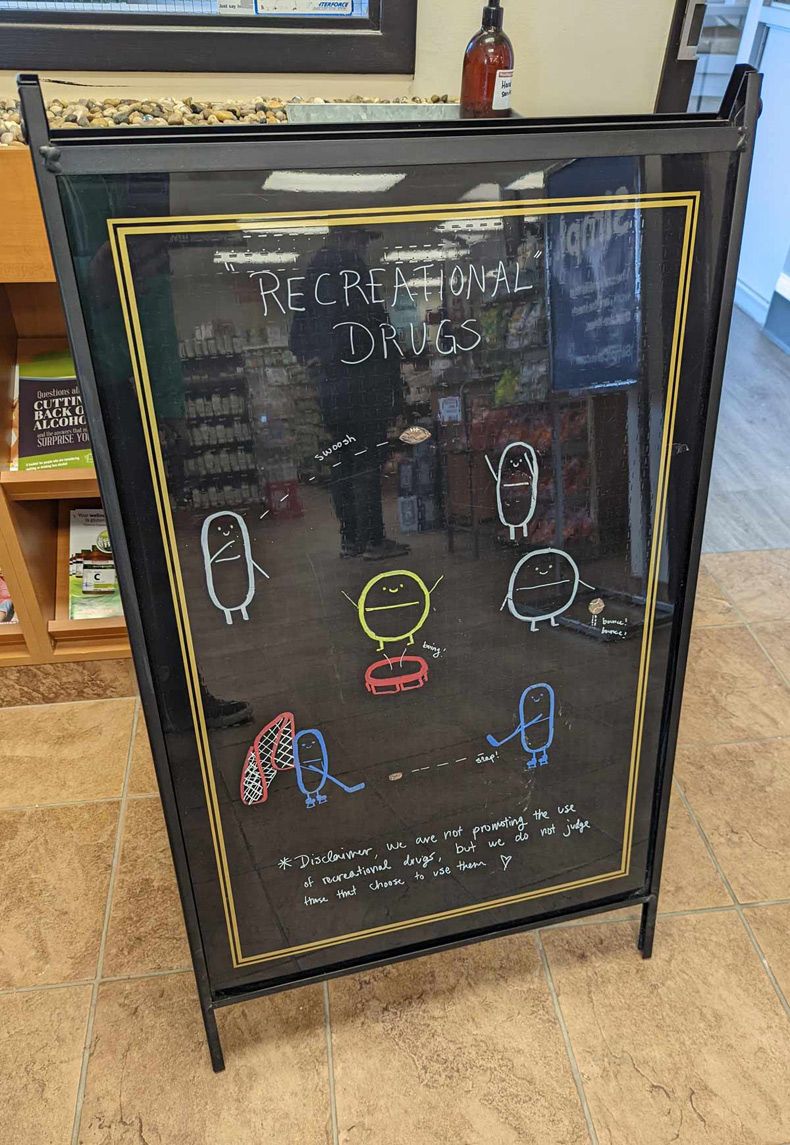 Just say
"RECREATIONAL"
DRUGS
swoosh
boing!
bounce!
bounce!
slap!
* Disclaimer, we are not promoting the use
of recreational drugs, but we do not judge
those that choose to use them ♡
Questions
CUTTING
BACK O
ALCOHO
and the answers that
SURPRISE YO
C